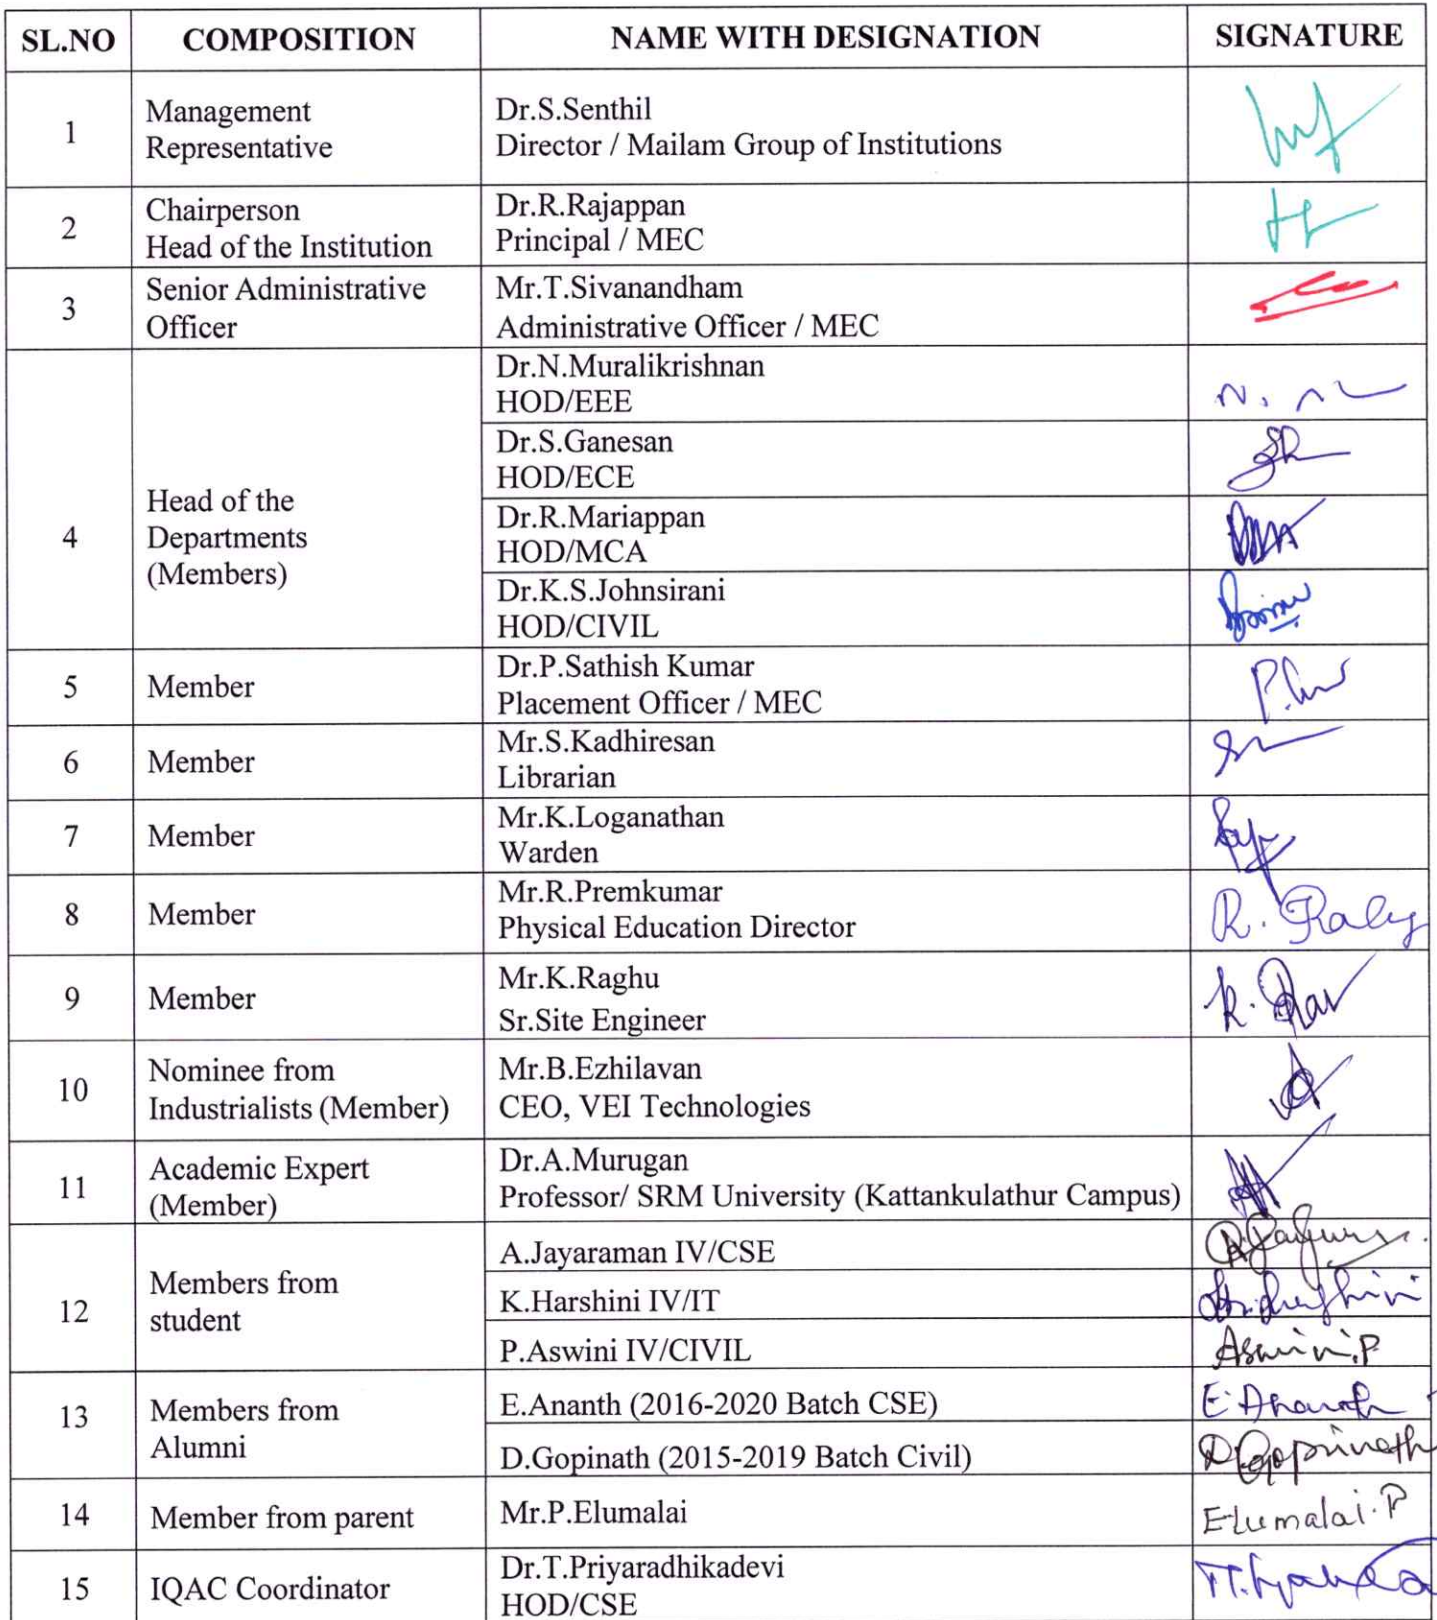 SL.NO COMPOSITION NAME WITH DESIGNATION SIGNATURE
1
Management
Representative
Dr.S.Senthil
Director / Mailam Group of Institutions
2
Chairperson
Head of the Institution
Dr.R.Rajappan
Principal / MEC
3
Senior Administrative
Officer
Mr.T.Sivanandham
Administrative Officer / MEC
4
Head of the
Departments
(Members)
Dr.N.Muralikrishnan
HOD/EEE
Dr.S.Ganesan
HOD/ECE
Dr.R.Mariappan
HOD/MCA
Dr.K.S.Johnsirani
HOD/CIVIL
5
Member
Dr.P.Sathish Kumar
Placement Officer / MEC
6
Member
Mr.S.Kadhiresan
Librarian
7
Member
Mr.K.Loganathan
Warden
8
Member
Mr.R.Premkumar
Physical Education Director
9
Member
Mr.K.Raghu
Sr.Site Engineer
10
Nominee from
Industrialists (Member)
Mr.B.Ezhilavan
CEO, VEI Technologies
11
Academic Expert
(Member)
Dr.A.Murugan
Professor/ SRM University (Kattankulathur Campus)
12
Members from
student
A.Jayaraman IV/CSE
K.Harshini IV/IT
P.Aswini IV/CIVIL
Aswini.P
13
Members from
Alumni
E.Ananth (2016-2020 Batch CSE)
E.Ananth
D.Gopinath (2015-2019 Batch Civil)
D.Gopinath
14
Member from parent
Mr.P.Elumalai
Elumalai.P
15
IQAC Coordinator
Dr.T.Priyaradhikadevi
HOD/CSE